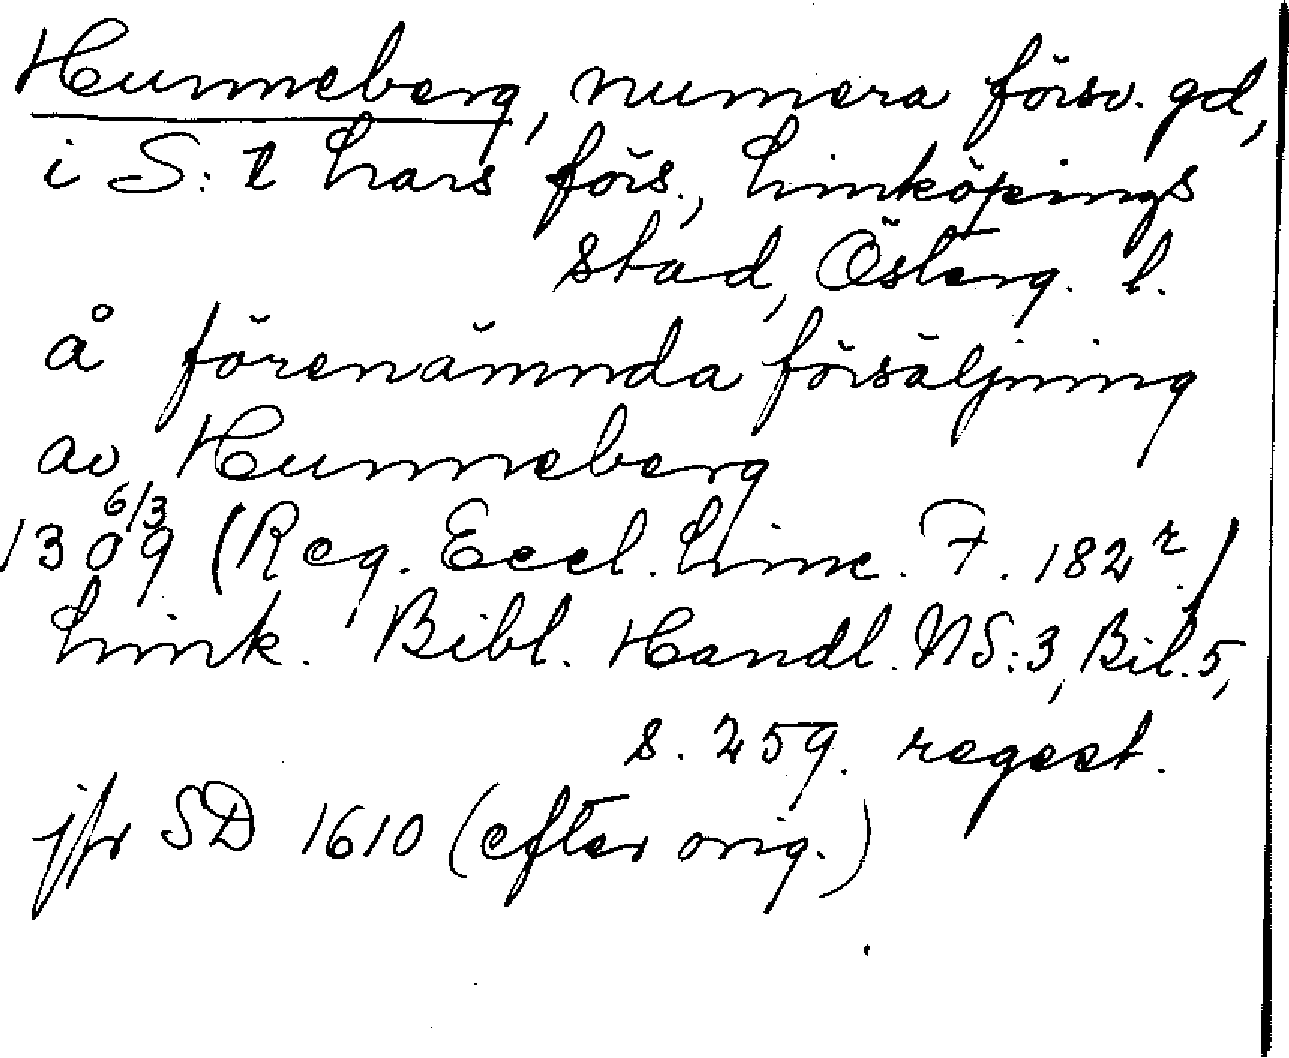 Hunneberg, numera försv. gd,
i S:t Lars förs., Linköpings
stad, Österg. l.
å förenämnda försäljning
av Hunneberg
1309 6/3 (Reg. Eccl. Linc. F. 182 r./
Link. Bibl. Handl. NS:3, Bil. 5,
s. 259. regest.
jfr SD 1610 (efter orig.)